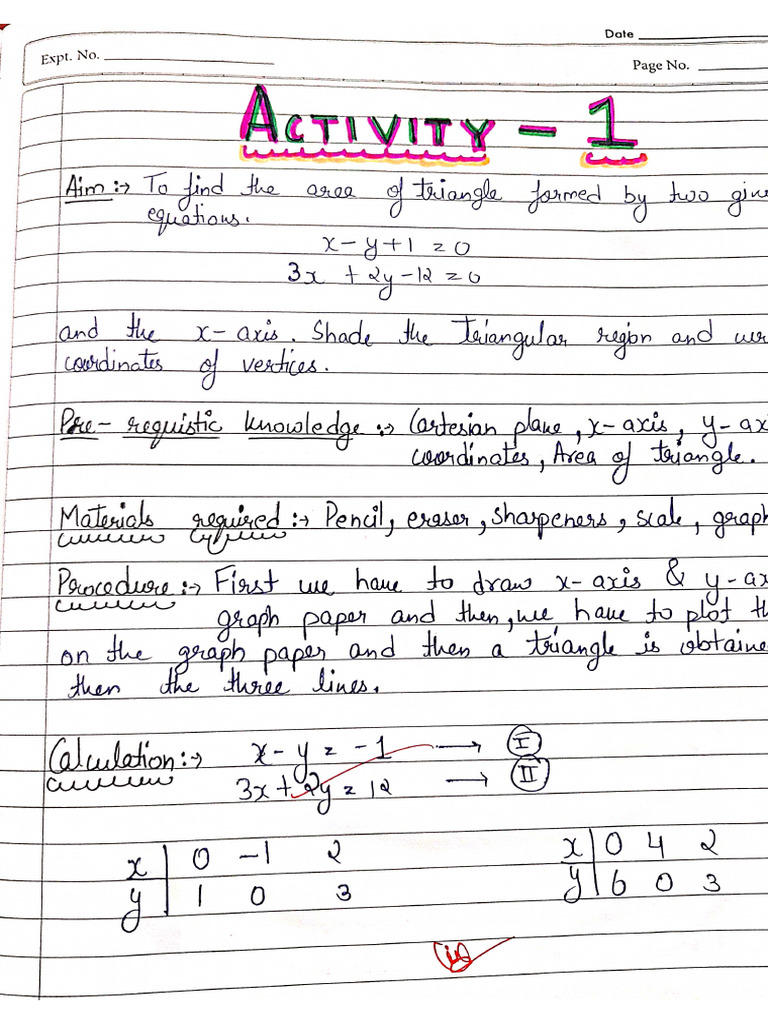 Date
Expt. No.
Page No.
ACTIVITY - 1
Aim:→ To find the area of triangle formed by two give
equations.
x - y + 1 = 0
3x + 2y - 12 = 0
and the x-axis. Shade the triangular region and wri
coordinates of vertices.
Pre-requistic knowledge:→ Cartesian plane, x-axis, y-ax
coordinates, Area of triangle.
Materials required:→ Pencil, eraser, sharpeners, scale, graph
Procedure:→ First we have to draw x-axis & y-ax
graph paper and then, we have to plot th
on the graph paper and then a triangle is obtaine
then the three lines.
Calculation:→ x - y = -1 → I
3x + 2y = 12 → II
x | 0 -1 2 x | 0 4 2
y | 1 0 3 y | 6 0 3